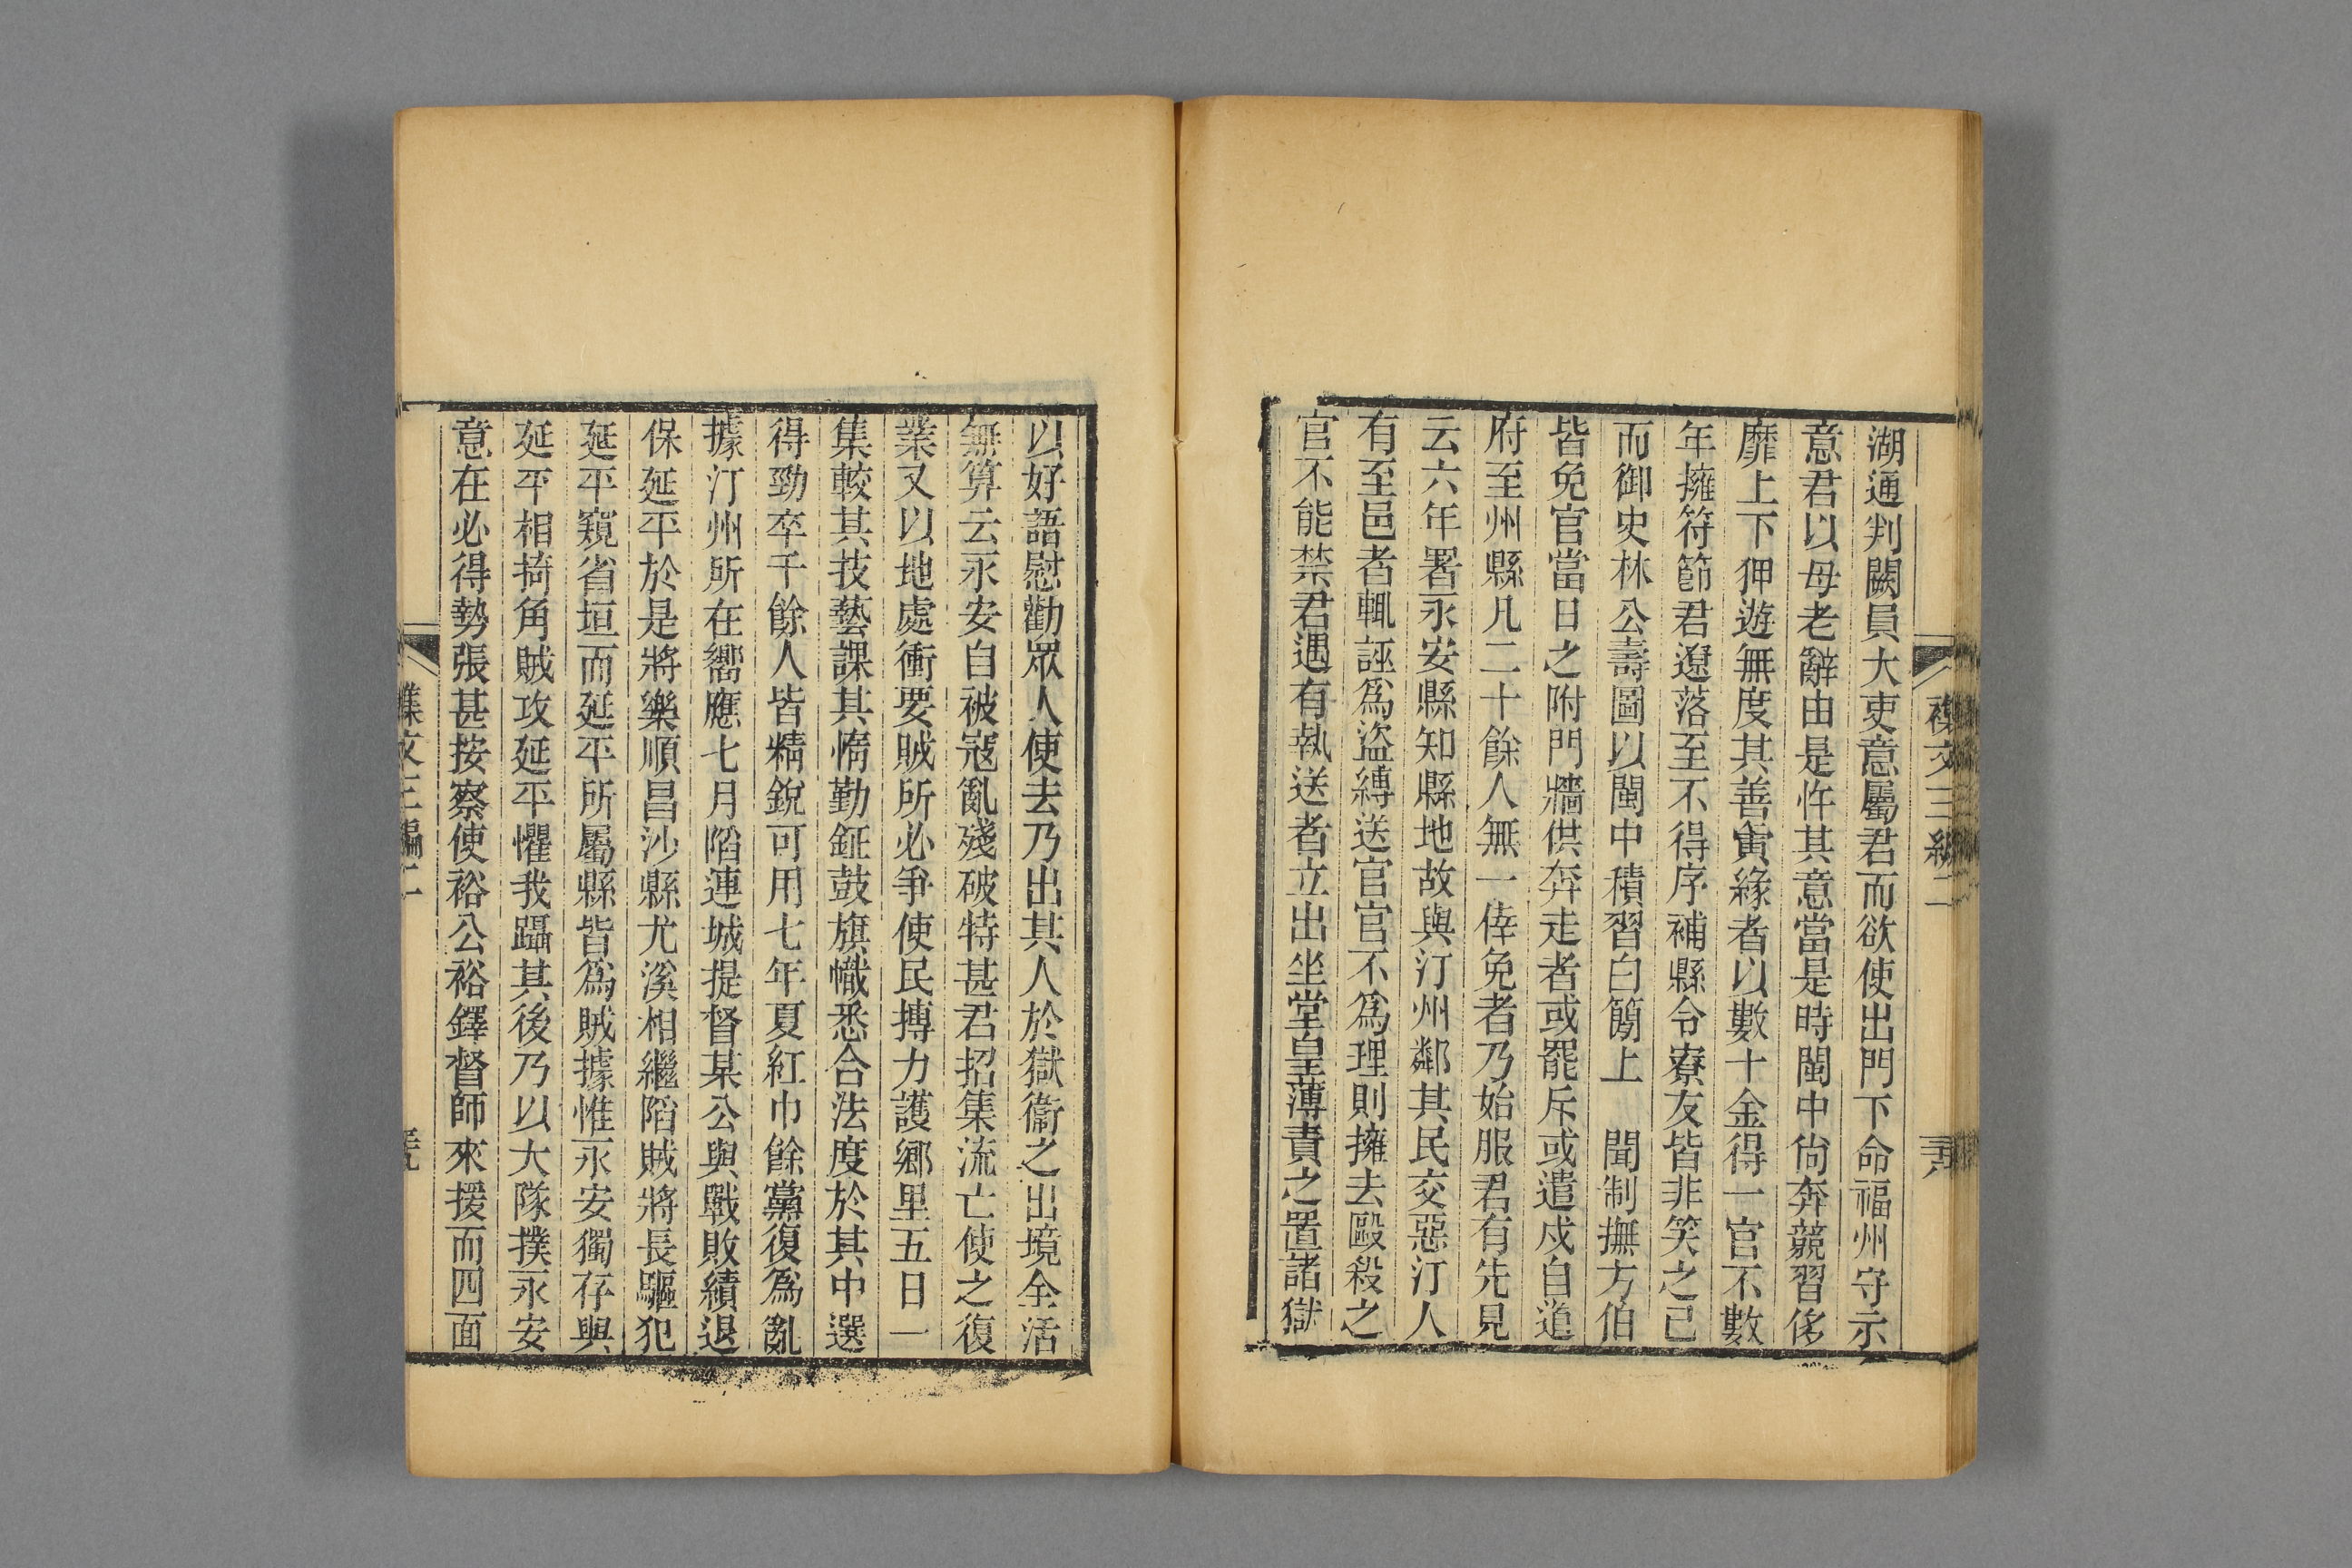 湖通判闕員大吏意屬君而欲使出門下命福州守示
意君以母老辭由是忤其意當是時閩中尚奔競習侈
靡上下狎遊無度其善夤緣者以數十金得一官不數
年擁符節君遼落至不得序補縣令寮友皆非笑之已
而御史林公壽圖以閩中積習白簡上　聞制撫方伯
皆免官當日之附門牆供奔走者或罷斥或遣戍自道
府至州縣凡二十餘人無一倖免者乃始服君有先見
云六年署永安縣知縣地故與汀州鄰其民交惡汀人
有至邑者輒誣爲盜縛送官官不爲理則擁去毆殺之
官不能禁君遇有執送者立出坐堂皇薄責之置諸獄
以好語慰勸眾人使去乃出其人於獄衞之出境全活
無算云永安自被寇亂殘破特甚君招集流亡使之復
業又以地處衝要賊所必爭使民摶力護鄉里五日一
集較其技藝課其惰勤鉦鼓旗幟悉合法度於其中選
得勁卒千餘人皆精銳可用七年夏紅巾餘黨復爲亂
據汀州所在嚮應七月陷連城提督某公與戰敗績退
保延平於是將樂順昌沙縣尤溪相繼陷賊將長驅犯
延平窺省垣而延平所屬縣皆爲賊據惟永安獨存與
延平相掎角賊攻延平懼我躡其後乃以大隊撲永安
意在必得勢張甚按察使裕公裕鐸督師來援而四面
文三編二